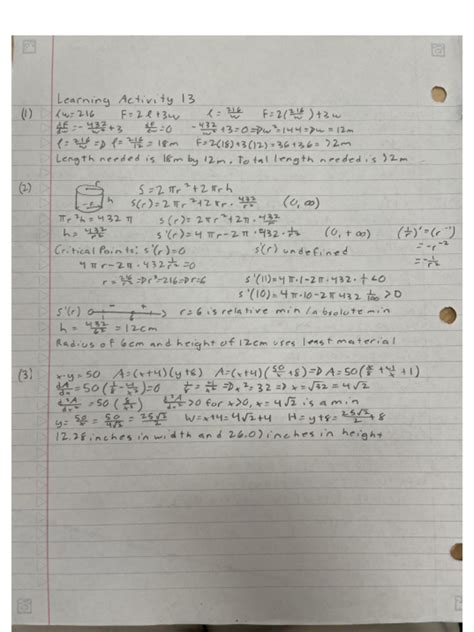 Learning Activity 13
(1) lw=216 F=2l+3w l=216/w F=2(216/w)+3w
dF/dw=-432/w²+3 dF/dw=0 -432/w²+3=0=Dw²=144=Dw=12m
l=216/w=D l=216/12=18m F=2(18)+3(12)=36+36=72m
Length needed is 18m by 12m, Total length needed is 72m
(2) S=2πr²+2πrh
r h S(r)=2πr²+2πr·432/r² (0,∞)
πr²h=432π S(r)=2πr²+2π·432/r
h=432/r² S'(r)=4πr-2π·432·1/r² (0,+∞) (1/r)'=(r⁻¹)
=-r⁻²
Critical Points: S'(r)=0 S'(r) undefined =-1/r²
4πr-2π·432 1/r²=0
r=216/r²=Dr³=216=Dr=6 S'(1)=4π·1-2π·432·1/1<0
S'(10)=4π·10-2π432 1/100>0
S'(r) 0 - + r=6 is relative min/absolute min
h=432/6²=12cm
Radius of 6cm and height of 12cm uses least material
(3) x·y=50 A=(x+4)(y+8) A=(x+4)(50/x+8)=D
y=50/x=50/4√2=25√2/2 W=x+4=4√2+4 H=y+8=25√2/2+8
inches in width and inches in height